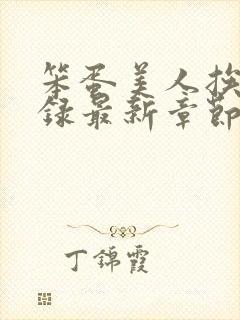 笨蛋美人挨
录最新章節
丁錦霞